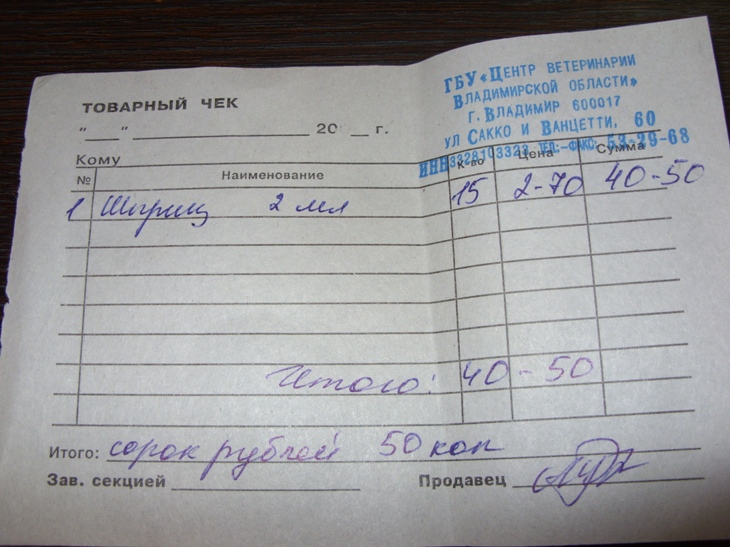 ГБУ «Центр ветеринарии
Владимирской области»
г. Владимир 600017
ул Сакко и Ванцетти, 60
ИНН3328103323 тел:-факс: 53-29-68
ТОВАРНЫЙ ЧЕК
"___" ___ 20 __ г.
Кому
№ Наименование К-во Цена Сумма
1 Шприц 2 мл 15 2-70 40-50
Итого: 40-50
Итого: сорок рублей 50 коп
Зав. секцией Продавец